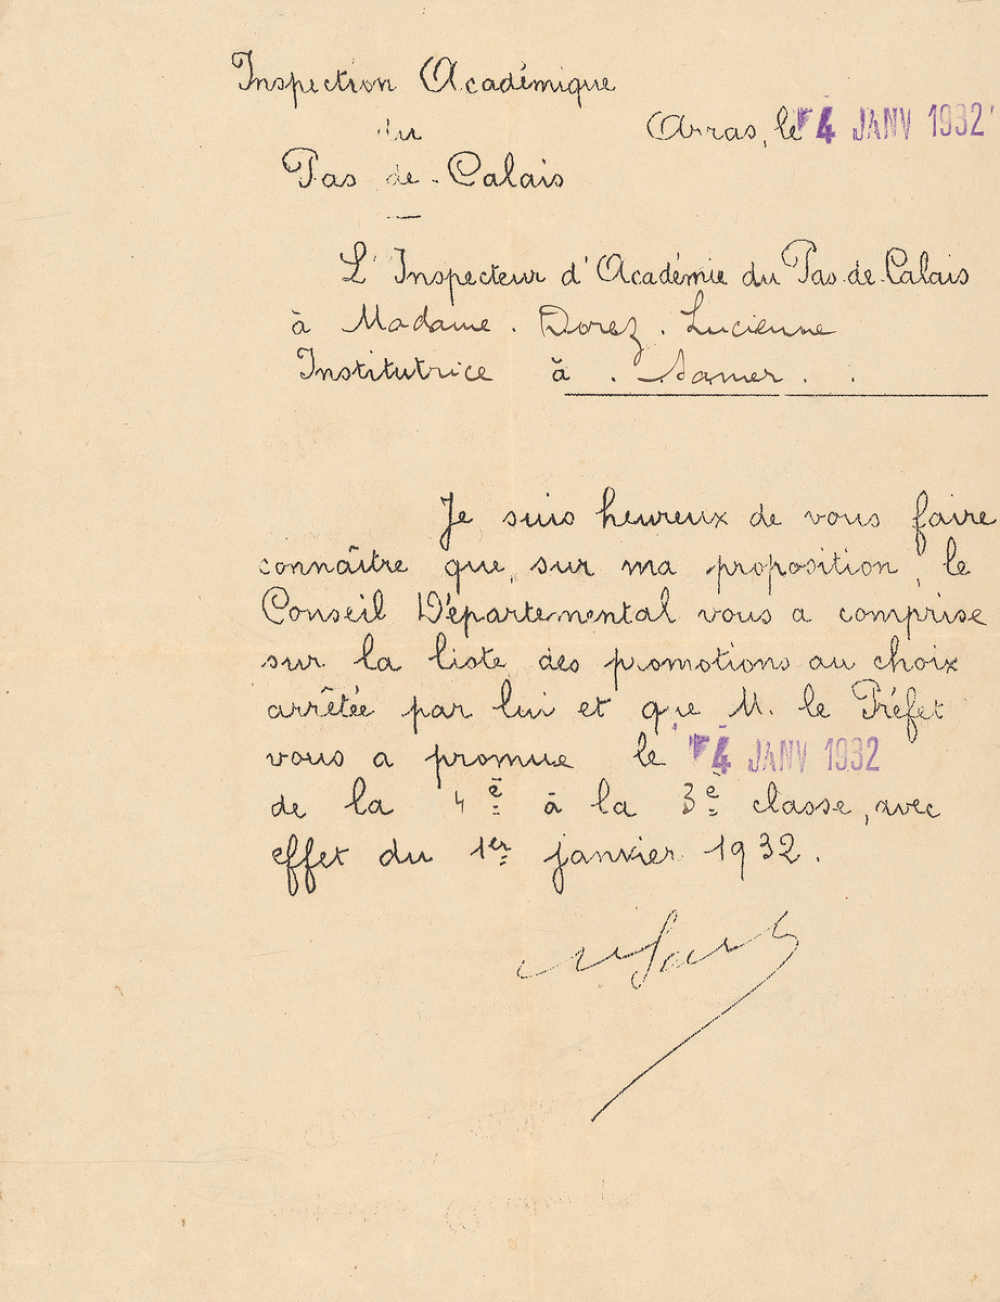 Inspection Académique
du
Arras, le 4 JANV 1932
Pas de-Calais
L'Inspecteur d'Académie du Pas-de-Calais
à Madame Dorez Lucienne
Institutrice à Samer
Je suis heureux de vous faire
connaître que, sur ma proposition, le
Conseil Départemental vous a comprise
sur la liste des promotions au choix
arrêtée par lui et que M. le Préfet
vous a promue le 4 JANV 1932
de la 4è à la 3è classe, avec
effet du 1er janvier 1932.